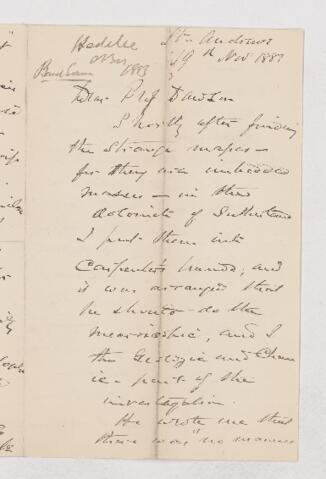 Heddle
1883
St. Andrews
19th Nov 1887
Dear Prof Dawson
Shortly after finding
the strange masses -
for they are imbedded
masses - in the
dolomite of Sutherland
I put them into
Carpenter's hands, and
it was arranged that
he should do the
microscopic, and I
the Geologic and Chem
ic - part of the
investigation.
He wrote me that
there was "no manner